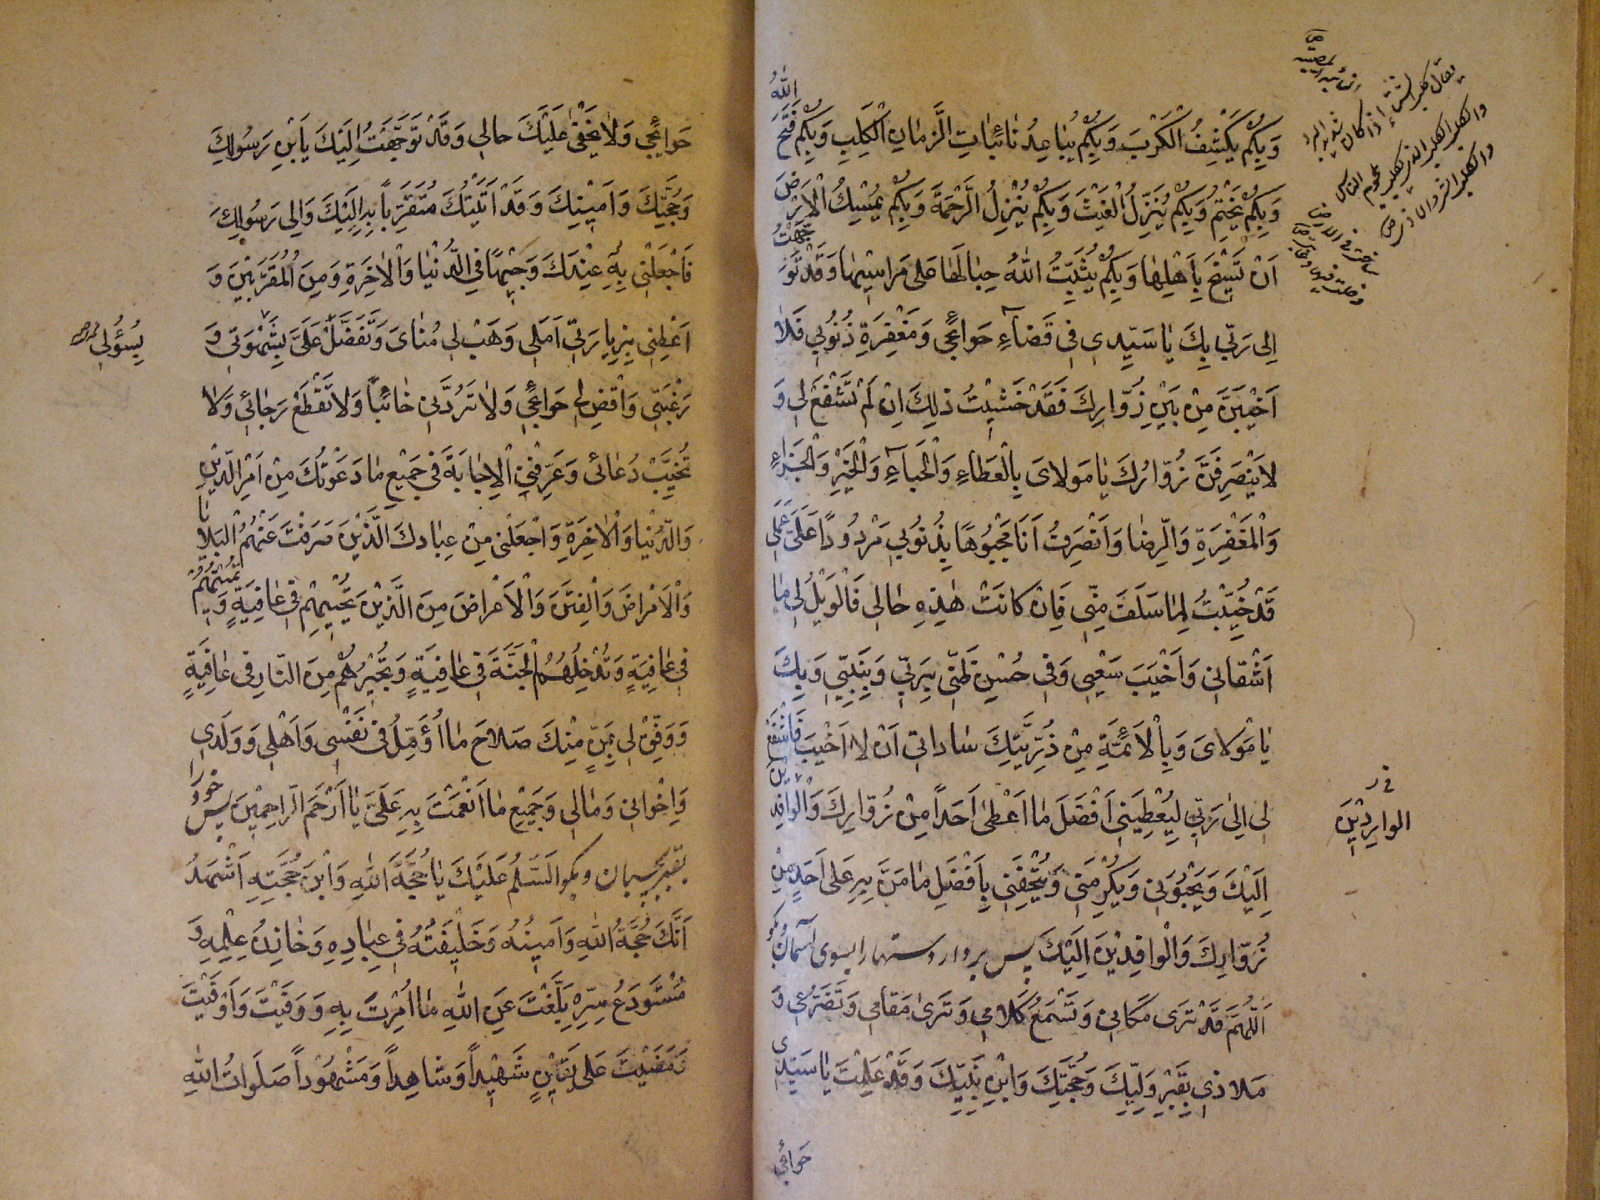 وَبِكُمْ يَكْشِفُ الْكَرْبَ وَبِكُمْ يُبَاعِدُ نَائِبَاتِ الزَّمَانِ الْكَلِبِ وَبِكُمْ فَتَحَ اللهُ
وَبِكُمْ يَخْتِمُ وَبِكُمْ يُنَزِّلُ الْغَيْثَ وَبِكُمْ يُنْزِلُ الرَّحْمَةَ وَبِكُمْ يُمْسِكُ الْاَرْضَ
اَنْ تَسِيخَ بِاَهْلِهَا وَبِكُمْ يُثَبِّتُ اللهُ جِبَالَهَا عَلى مَرَاسِيهَا وَقَدْ تَوَجَّهْتُ
اِلى رَبّى بِكَ يَا سَيِّدِى فى قَضَاءِ حَوَائِجى وَمَغْفِرَةِ ذُنُوبِي فَلَا
اَخِيبَنَّ مِنْ بَيْنِ زُوَّارِكَ فَقَدْ خَشِيتُ ذلِكَ اِنْ لَمْ تَشْفَعْ لى وَ
لا يَنْصَرِفَنَّ زُوَّارُكَ يَا مَولاىَ بِالْعَطَاءِ وَالْحَباءِ وَالْخَيْرِ وَالْجَزَاءِ
وَالْمَغْفِرَةِ وَالرِّضَا وَاَنْصَرِفُ اَنَا مَجْبُوهًا بِذُنُوبِي مَرْدُودًا عَلَىَّ عَمَلى
قَدْ خُيِّبْتُ لِمَا سَلَفَ مِنّى فَاِنْ كَانَتْ هذِهِ حَالى فَالْوَيْلُ لى مَا
اَشْقانى وَاَخْيَبَ سَعْيِى وَفى حُسْنِ ظَنّى بِرَبّى وَبِنَبِيّى وَبِكَ
يَا مَوْلاىَ وَبِالْاَئِمَّةِ مِنْ ذُرِّيَّتِكَ سَاداتى اَنْ لا اَخْيَبَ فَاشْفَعْ
لى اِلى رَبّى لِيُعْطِيَنى اَفْضَلَ مَا اَعْطى اَحَداً مِنْ زُوَّارِكَ وَالْوَافِدِينَ
اِلَيْكَ وَيَحْبُوَنى وَيُكْرِمَنى وَيُتْحِفَنى بِاَفْضَلِ مَا مَنَّ بِهِ عَلى اَحَدٍ مِنْ
زُوَّارِكَ وَالْوَافِدِينَ اِلَيْكَ پس بردار دستها را بسوى آسمان وبگو
اَللّهُمَّ قَدْ تَرى مَكَانى وَتَسْمَعُ كَلامى وَتَرى مَقَامى وَتَضَرُّعى وَ
مَلاذى بِقَبْرِ وَلِيِّكَ وَحُجَّتِكَ وَابْنِ نَبِيِّكَ وَقَدْ عَلِمْتَ يَا سَيِّدى
حَوَائِجى
الوارِدِينَ
حَوَائِجى وَلَا يَخْفى عَلَيْكَ حالى وَقَدْ تَوَجَّهْتُ اِلَيْكَ بِاَبْنِ رَسُولِكَ
وَحُجَّتِكَ وَاَمِينِكَ وَقَدْ اَتَيْتُكَ مُتَقَرِّباً بِهِ اِلَيْكَ وَاِلى رَسُولِكَ
فَاجْعَلْنى بِهِ عِنْدَكَ وَجِيْهًا فِى الدُّنْيَا وَالْاخِرَةِ وَمِنَ الْمُقَرَّبِينَ وَ
اَعْطِنى بِزِيارَتى اَمَلى وَهَبْ لى مُنَاىَ وَتَفَضَّلْ عَلَىَّ بِشَهْوَتى وَ
رَغْبَتى وَاقْضِ لى حَوَائِجى وَلا تَرُدَّنى خَائِباً وَلا تَقْطَعْ رَجَائى وَلا
تُخَيِّبْ دُعَائى وَعَرِّفْنِى الْاِجَابَةَ فى جَمِيعِ مَا دَعَوْتُكَ مِنْ اَمْرِ الدِّيْنِ
وَالدُّنْيَا وَالْاخِرَةِ وَاجْعَلْنى مِنْ عِبَادِكَ الَّذِيْنَ صَرَفْتَ عَنْهُمُ الْبَلايَا
وَالْاَمْرَاضَ وَالْفِتَنَ وَالْاَعْراضَ مِنَ الَّذِيْنَ تُحْيِيهِمْ فى عَافِيَةٍ وَتُمِيتُهُمْ
فى عَافِيَةٍ وَتُدْخِلُهُمُ الْجَنَّةَ فى عَافِيَةٍ وَتُجِيْرُهُمْ مِنَ النَّارِ فى عَافِيَةٍ
وَوَفِّقْ لى بِمَنٍّ مِنْكَ صَلاحَ مَا اُؤَمِّلُ فى نَفْسى وَاَهْلى وَوَلَدى
وَاِخْوانى وَمَالى وَجَمِيْعِ مَا اَنْعَمْتَ بِهِ عَلَىَّ يَا اَرْحَمَ الرَّاحِمِيْنَ پس خود را
بقبر بچسبان وبگو اَلسَّلامُ عَلَيْكَ يَا حُجَّةَ اللهِ وَابْنَ حُجَّتِهِ اَشْهَدُ
اَنَّكَ حُجَّةُ اللهِ وَاَمِينُهُ وَخَلِيفَتُهُ فى عِبَادِهِ وَخَازِنُ عِلْمِهِ وَ
مُسْتَوْدَعُ سِرِّهِ بَلَّغْتَ عَنِ اللهِ مَا اُمِرْتَ بِهِ وَوَفَيْتَ وَاَوْفَيْتَ
وَمَضَيْتَ عَلى يَقِيْنٍ شَهِيْداً وَشَاهِداً وَمَشْهُوْداً صَلَوَاتُ اللهِ
بِسُؤْلى